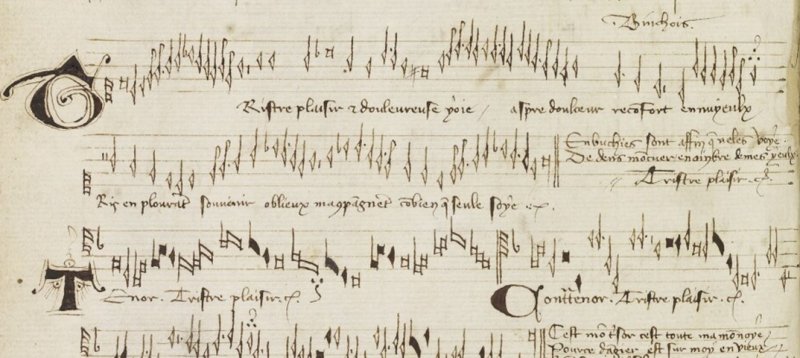 Binchois.
Tristre plaisir & douleureuse ioie / aspre doulceur reconfort ennuyeulx
Ris en plourant souvenir oblieux macompaignent combien que seule soye
Enbuchies sont affin que ne les voye
De dens mon cuer en l'ombre de mes yeulx
Tristre plaisir. &c.
Tenor. Tristre plaisir. &c.
Contratenor. Tristre plaisir. &c.
C'est mon tresor cest toute ma monoye